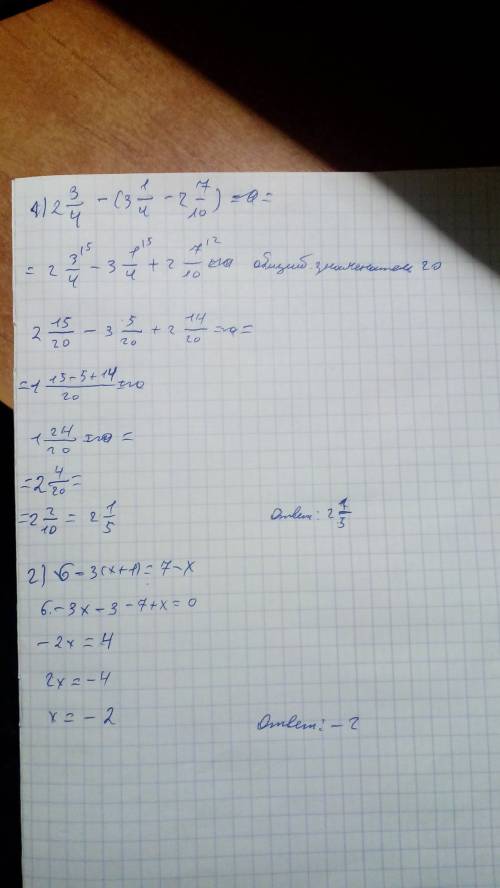 1) 2 3/4 − (3 1/4 − 2 7/10) =
= 2 3/4 ^15 − 3 1/4 ^15 + 2 7/10 ^12 общий знаменатель 20
2 15/20 − 3 5/20 + 2 14/20 =
= 1 (15 − 5 + 14)/20
1 24/20 =
= 2 4/20 =
= 2 2/10 = 2 1/5 Ответ: 2 1/5
2) 6 − 3(x + 1) = 7 − x
6 − 3x − 3 − 7 + x = 0
−2x = 4
2x = −4
x = − 2 Ответ: − 2